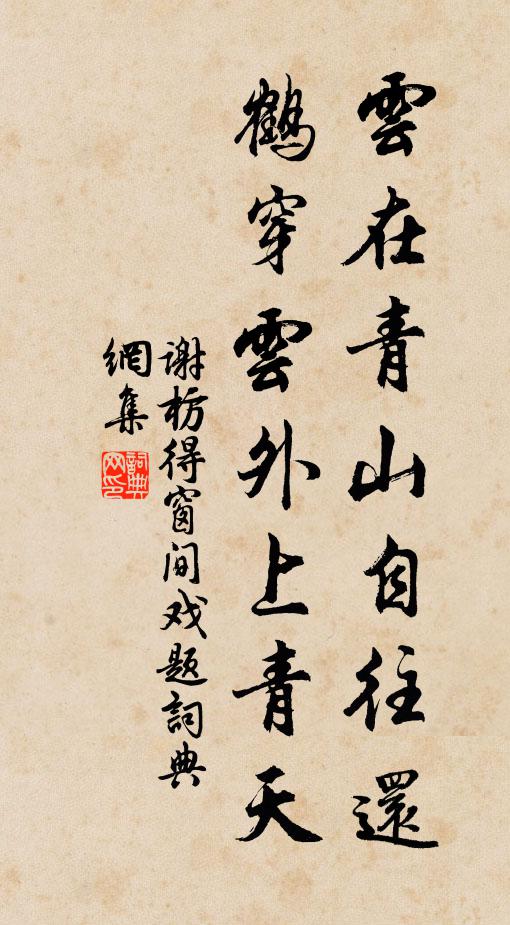 雲在青山自往還
鶴穿雲外上青天
谢枋得窗间戏题詞典
網集
詞典网印